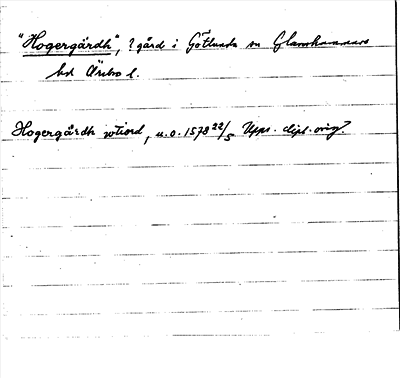 "Hogergårdh", ? gård i Götlunda sn Glanshammars
hd Örebro l.
Hogergårdh utiord, u.o. 1578 22/5 Upps. dipl. orig.